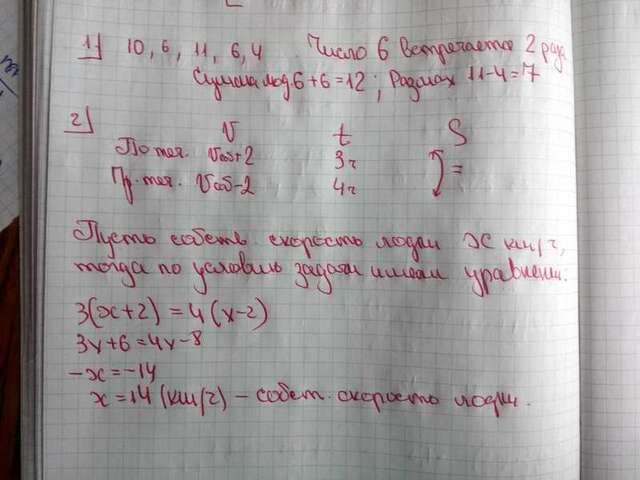 1) 10, 6, 11, 6, 4 Число 6 встречается 2 раза
Сумма мод 6+6=12; Размах 11-4=7
2) V t S
По теч. Vсоб+2 3ч
Пр. теч. Vсоб-2 4ч =
Пусть собств. скорость лодки x км/ч,
тогда по условию задачи имеем уравнение:
3(x+2)=4(x-2)
3x+6=4x-8
-x=-14
x=14 (км/ч) - собст. скорость лодки.